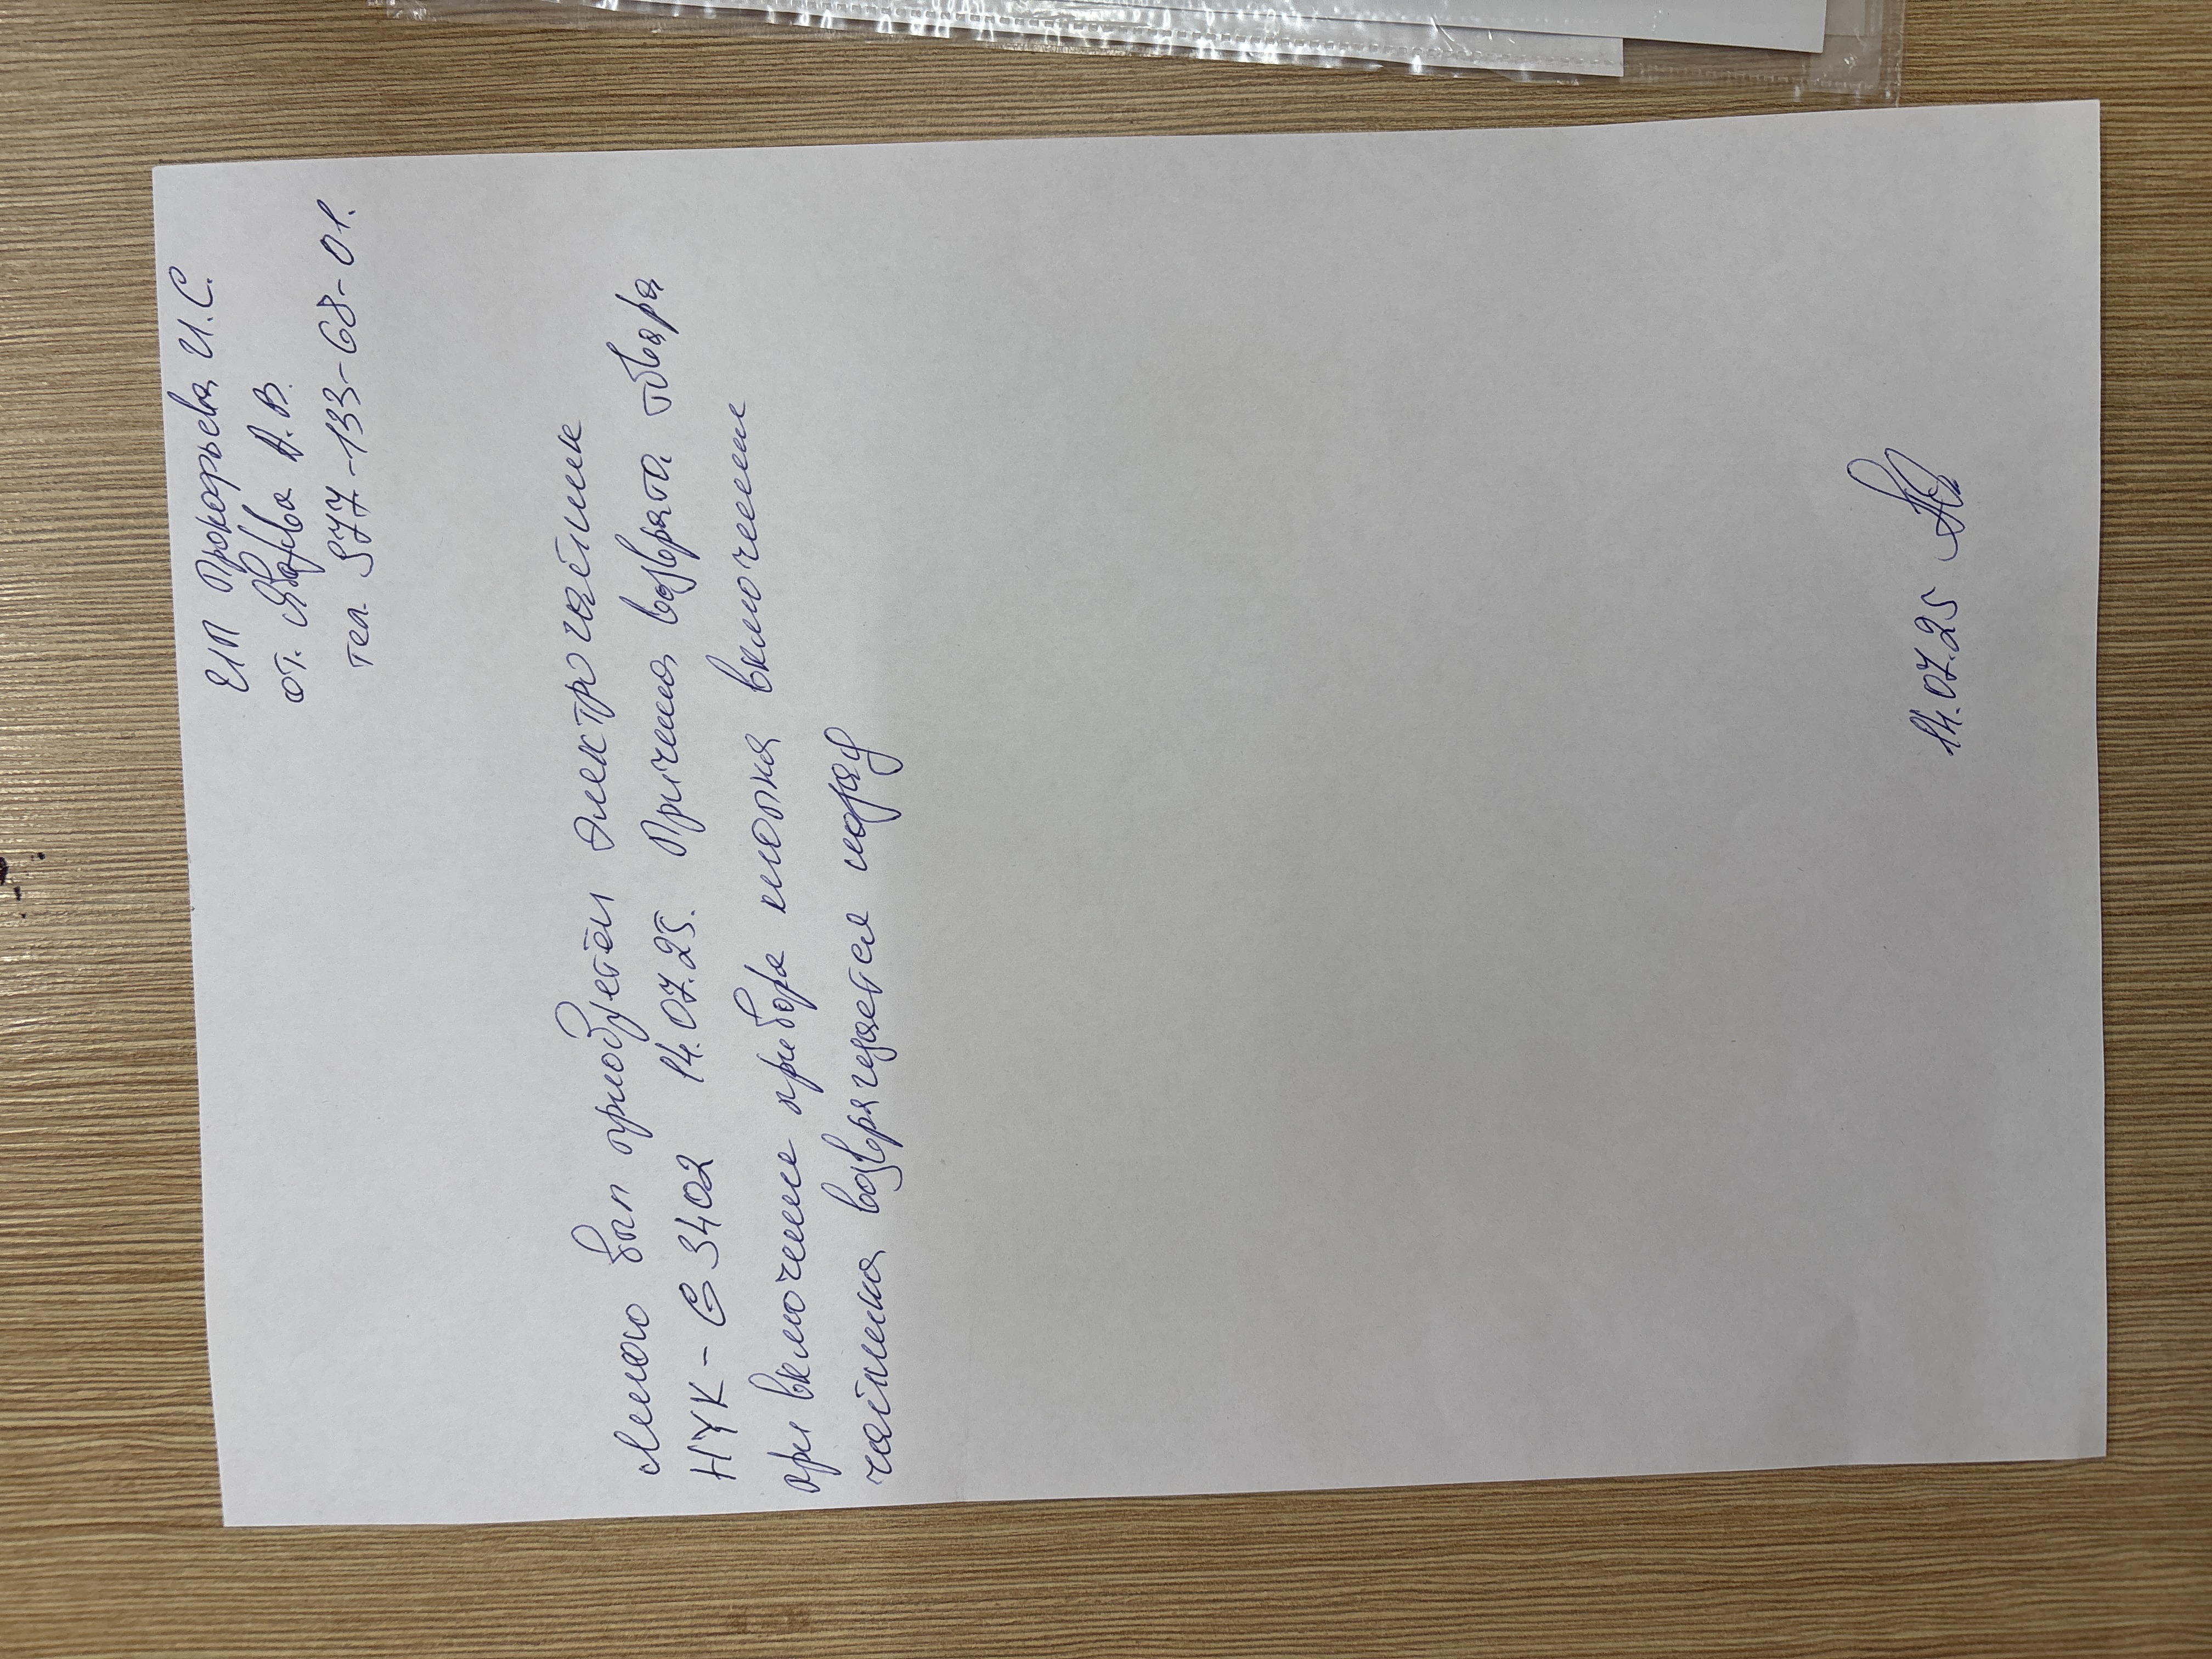 ЕИП Прокофьева И.С.
от. А.В.
тел. 977-133-68-01.
Мною был приобретён электрочайник
HYK-G3402 14.07.25. Причина возврата товара
при включение прибора кнопка включение
чайника возвращается
14.07.25